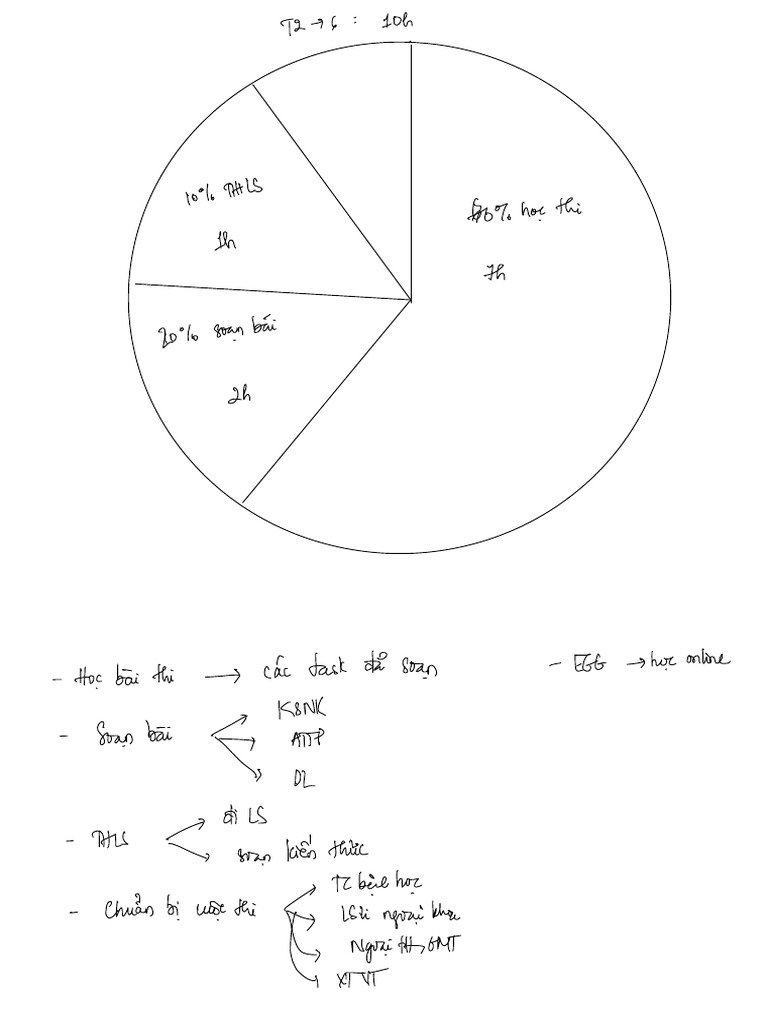 T2 → 6 : 10h
10% THLS
1h
70% học thi
7h
20% soạn bài
2h
- Học bài thi → các task đã soạn
- EGG → học online
- Soạn bài
KSNK
ATTP
DL
- THLS
đi LS
soạn kiến thức
- Chuẩn bị cuộc thi
TC bệnh học
LS ngoại khoa
Ngoại TH → GMT
XTVT